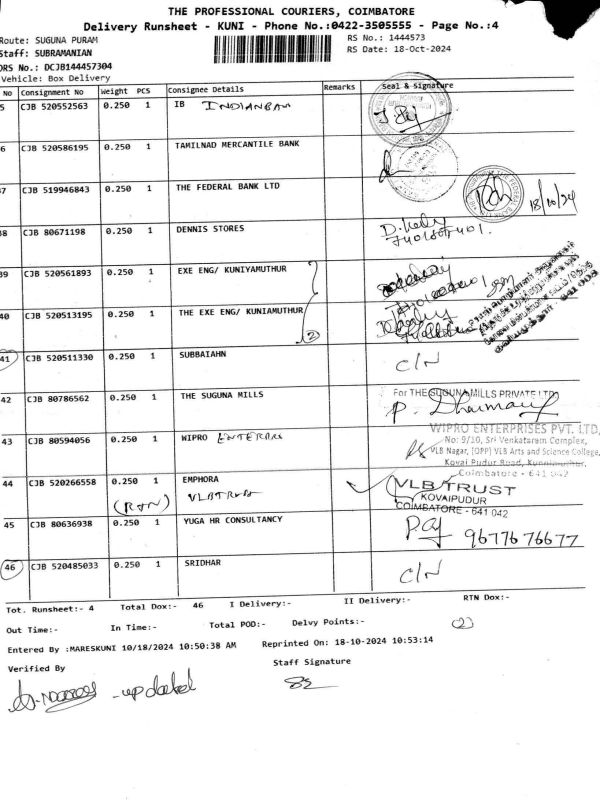 THE PROFESSIONAL COURIERS, COIMBATORE
Delivery Runsheet - KUNI - Phone No.:0422-3505555 - Page No.:4
Route: SUGUNA PURAM RS No.: 1444573
Staff: SUBRAMANIAN RS Date: 18-Oct-2024
DRS No.: DCJB144457304
Vehicle: Box Delivery
No Consignment No Weight PCS Consignee Details Remarks Seal & Signature
5 CJB 520552563 0.250 1 IB INDIANBAN
6 CJB 520586195 0.250 1 TAMILNAD MERCANTILE BANK
37 CJB 519946843 0.250 1 THE FEDERAL BANK LTD 18/10/24
38 CJB 80671198 0.250 1 DENNIS STORES
39 CJB 520561893 0.250 1 EXE ENG/ KUNIYAMUTHUR
40 CJB 520513195 0.250 1 THE EXE ENG/ KUNIAMUTHUR
2
41 CJB 520511330 0.250 1 SUBBAIAHN C/N
42 CJB 80786562 0.250 1 THE SUGUNA MILLS For THE SUGUNA MILLS PRIVATE LTD
43 CJB 80594056 0.250 1 WIPRO WIPRO ENTERPRISES PVT. LTD,
No: 9/10, Sri Venkataram Complex,
VLB Nagar, (OPP) VLB Arts and Science College,
Kovai Pudur Road, Kuniamuthur,
Coimbatore - 641 042
44 CJB 520266558 0.250 1 EMPHORA VLB TRUST
(RTN) VLBTRUST KOVAIPUDUR
COIMBATORE - 641 042
45 CJB 80636938 0.250 1 YUGA HR CONSULTANCY 9677676677
46 CJB 520485033 0.250 1 SRIDHAR C/N
Tot. Runsheet:- 4 Total Dox:- 46 I Delivery:- II Delivery:- RTN Dox:-
Out Time:- In Time:- Total POD:- Delvy Points:- (2)
Entered By :MARESKUNI 10/18/2024 10:50:38 AM Reprinted On: 18-10-2024 10:53:14
Verified By Staff Signature
- updated